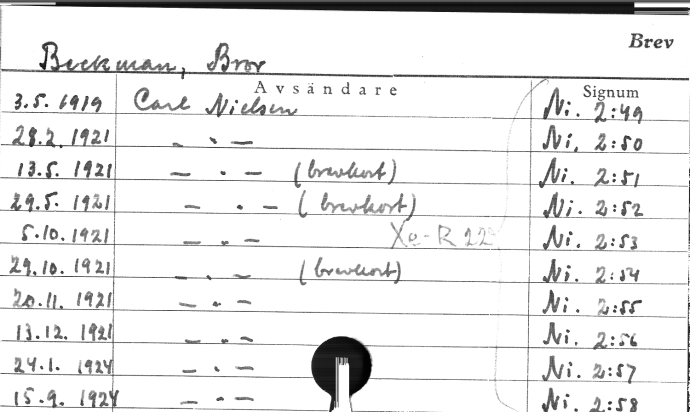 Brev
Beckman, Bror
Avsändare Signum
3.5. 1919 Carl Nielsen Ni. 2:49
28.2. 1921 — . — Ni. 2:50
13.5. 1921 — . — (brevkort) Ni. 2:51
29.5. 1921 — . — (brevkort) Ni. 2:52
5.10. 1921 — . — Xe-R 22 Ni. 2:53
29.10. 1921 — . — (brevkort) Ni. 2:54
20.11. 1921 — . — Ni. 2:55
13.12. 1921 — . — Ni. 2:56
24.1. 1924 — . — Ni. 2:57
15.9. 1924 — . — Ni. 2:58